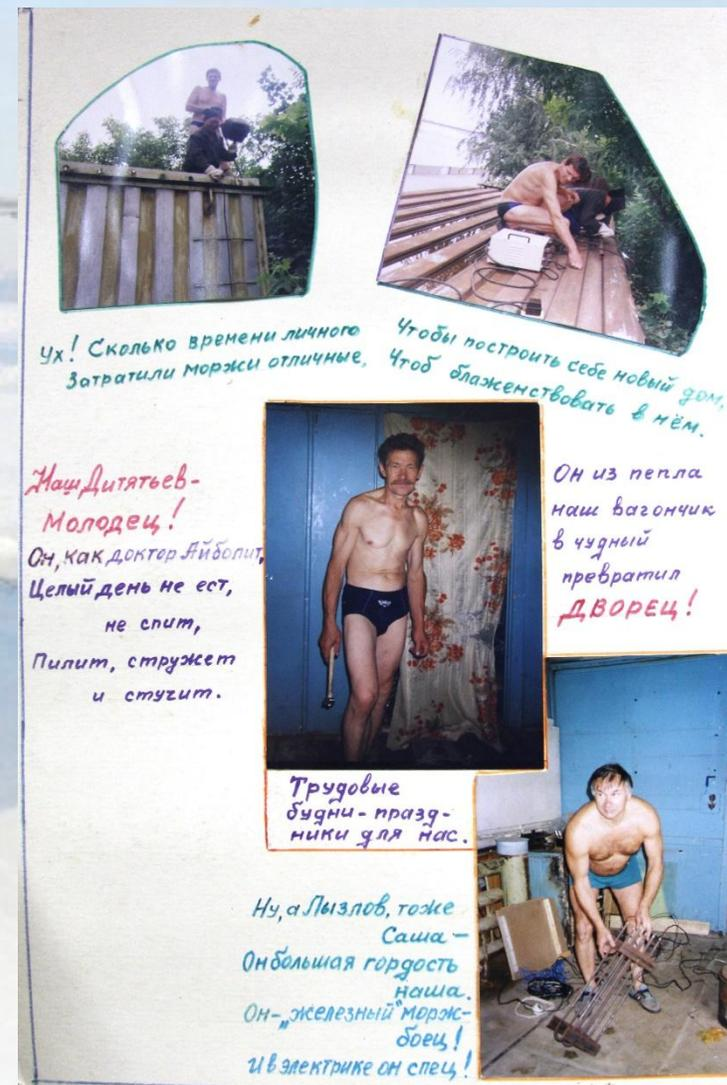 Ух! Сколько времени личного
Затратили моржи отличные,
Чтобы построить себе новый дом,
Чтоб блаженствовать в нём.
Наш Дитятьев-
Молодец!
Он, как доктор Айболит,
Целый день не ест,
не спит,
Пилит, стружет
и стучит.
Он из пепла
наш вагончик
в чудный
превратил
ДВОРЕЦ!
Трудовые
будни - празд-
ники для нас.
Ну, а Лызлов, тоже
Саша -
Он большая гордость
наша.
Он - „железный" морж-
боец!
И в электрике он спец!